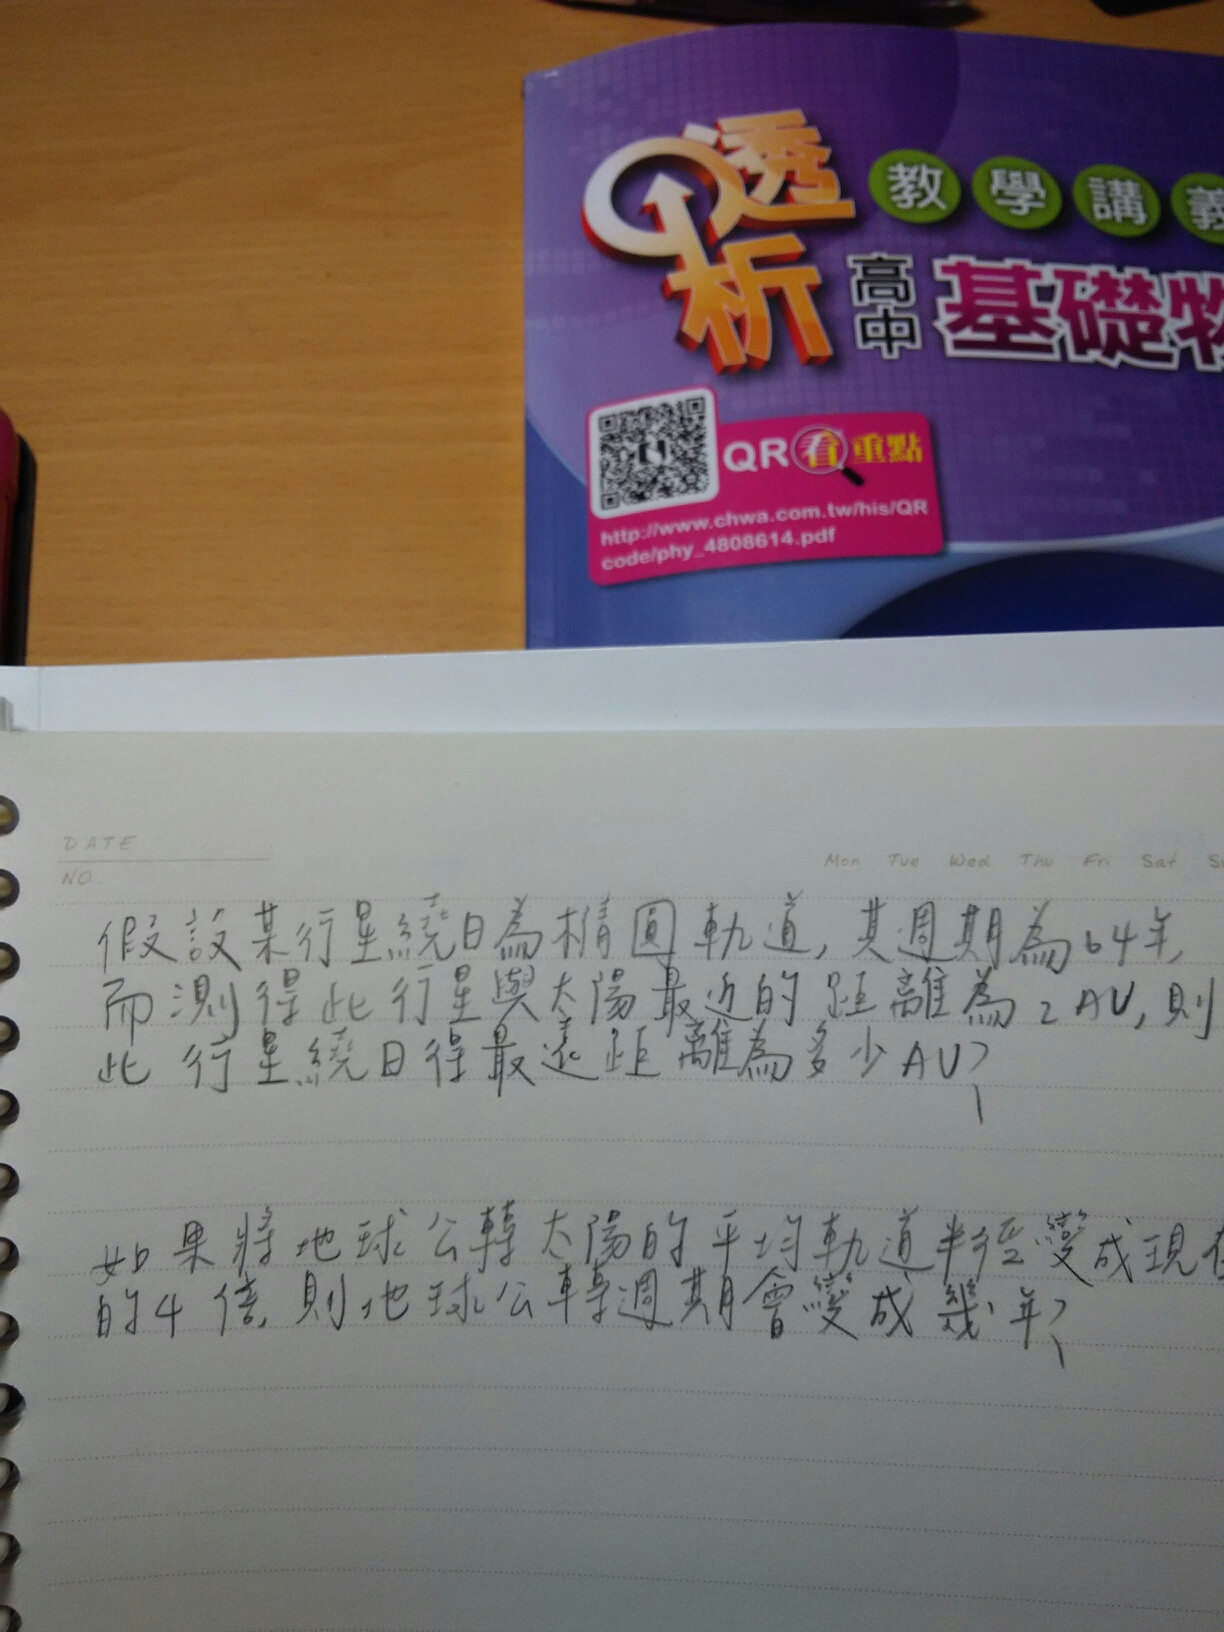 透析
教學講義
高中
基礎物
QR看重點
http://www.chwa.com.tw/his/QR
code/phy_4808614.pdf
DATE
NO.
Mon Tue Wed Thu Fri Sat Su
假設某行星繞日為橢圓軌道,其週期為64年,
而測得此行星與太陽最近的距離為2AU,則
此行星繞日得最遠距離為多少AU?
如果將地球公轉太陽的平均軌道半徑變成現在
的4倍,則地球公轉週期會變成幾年?